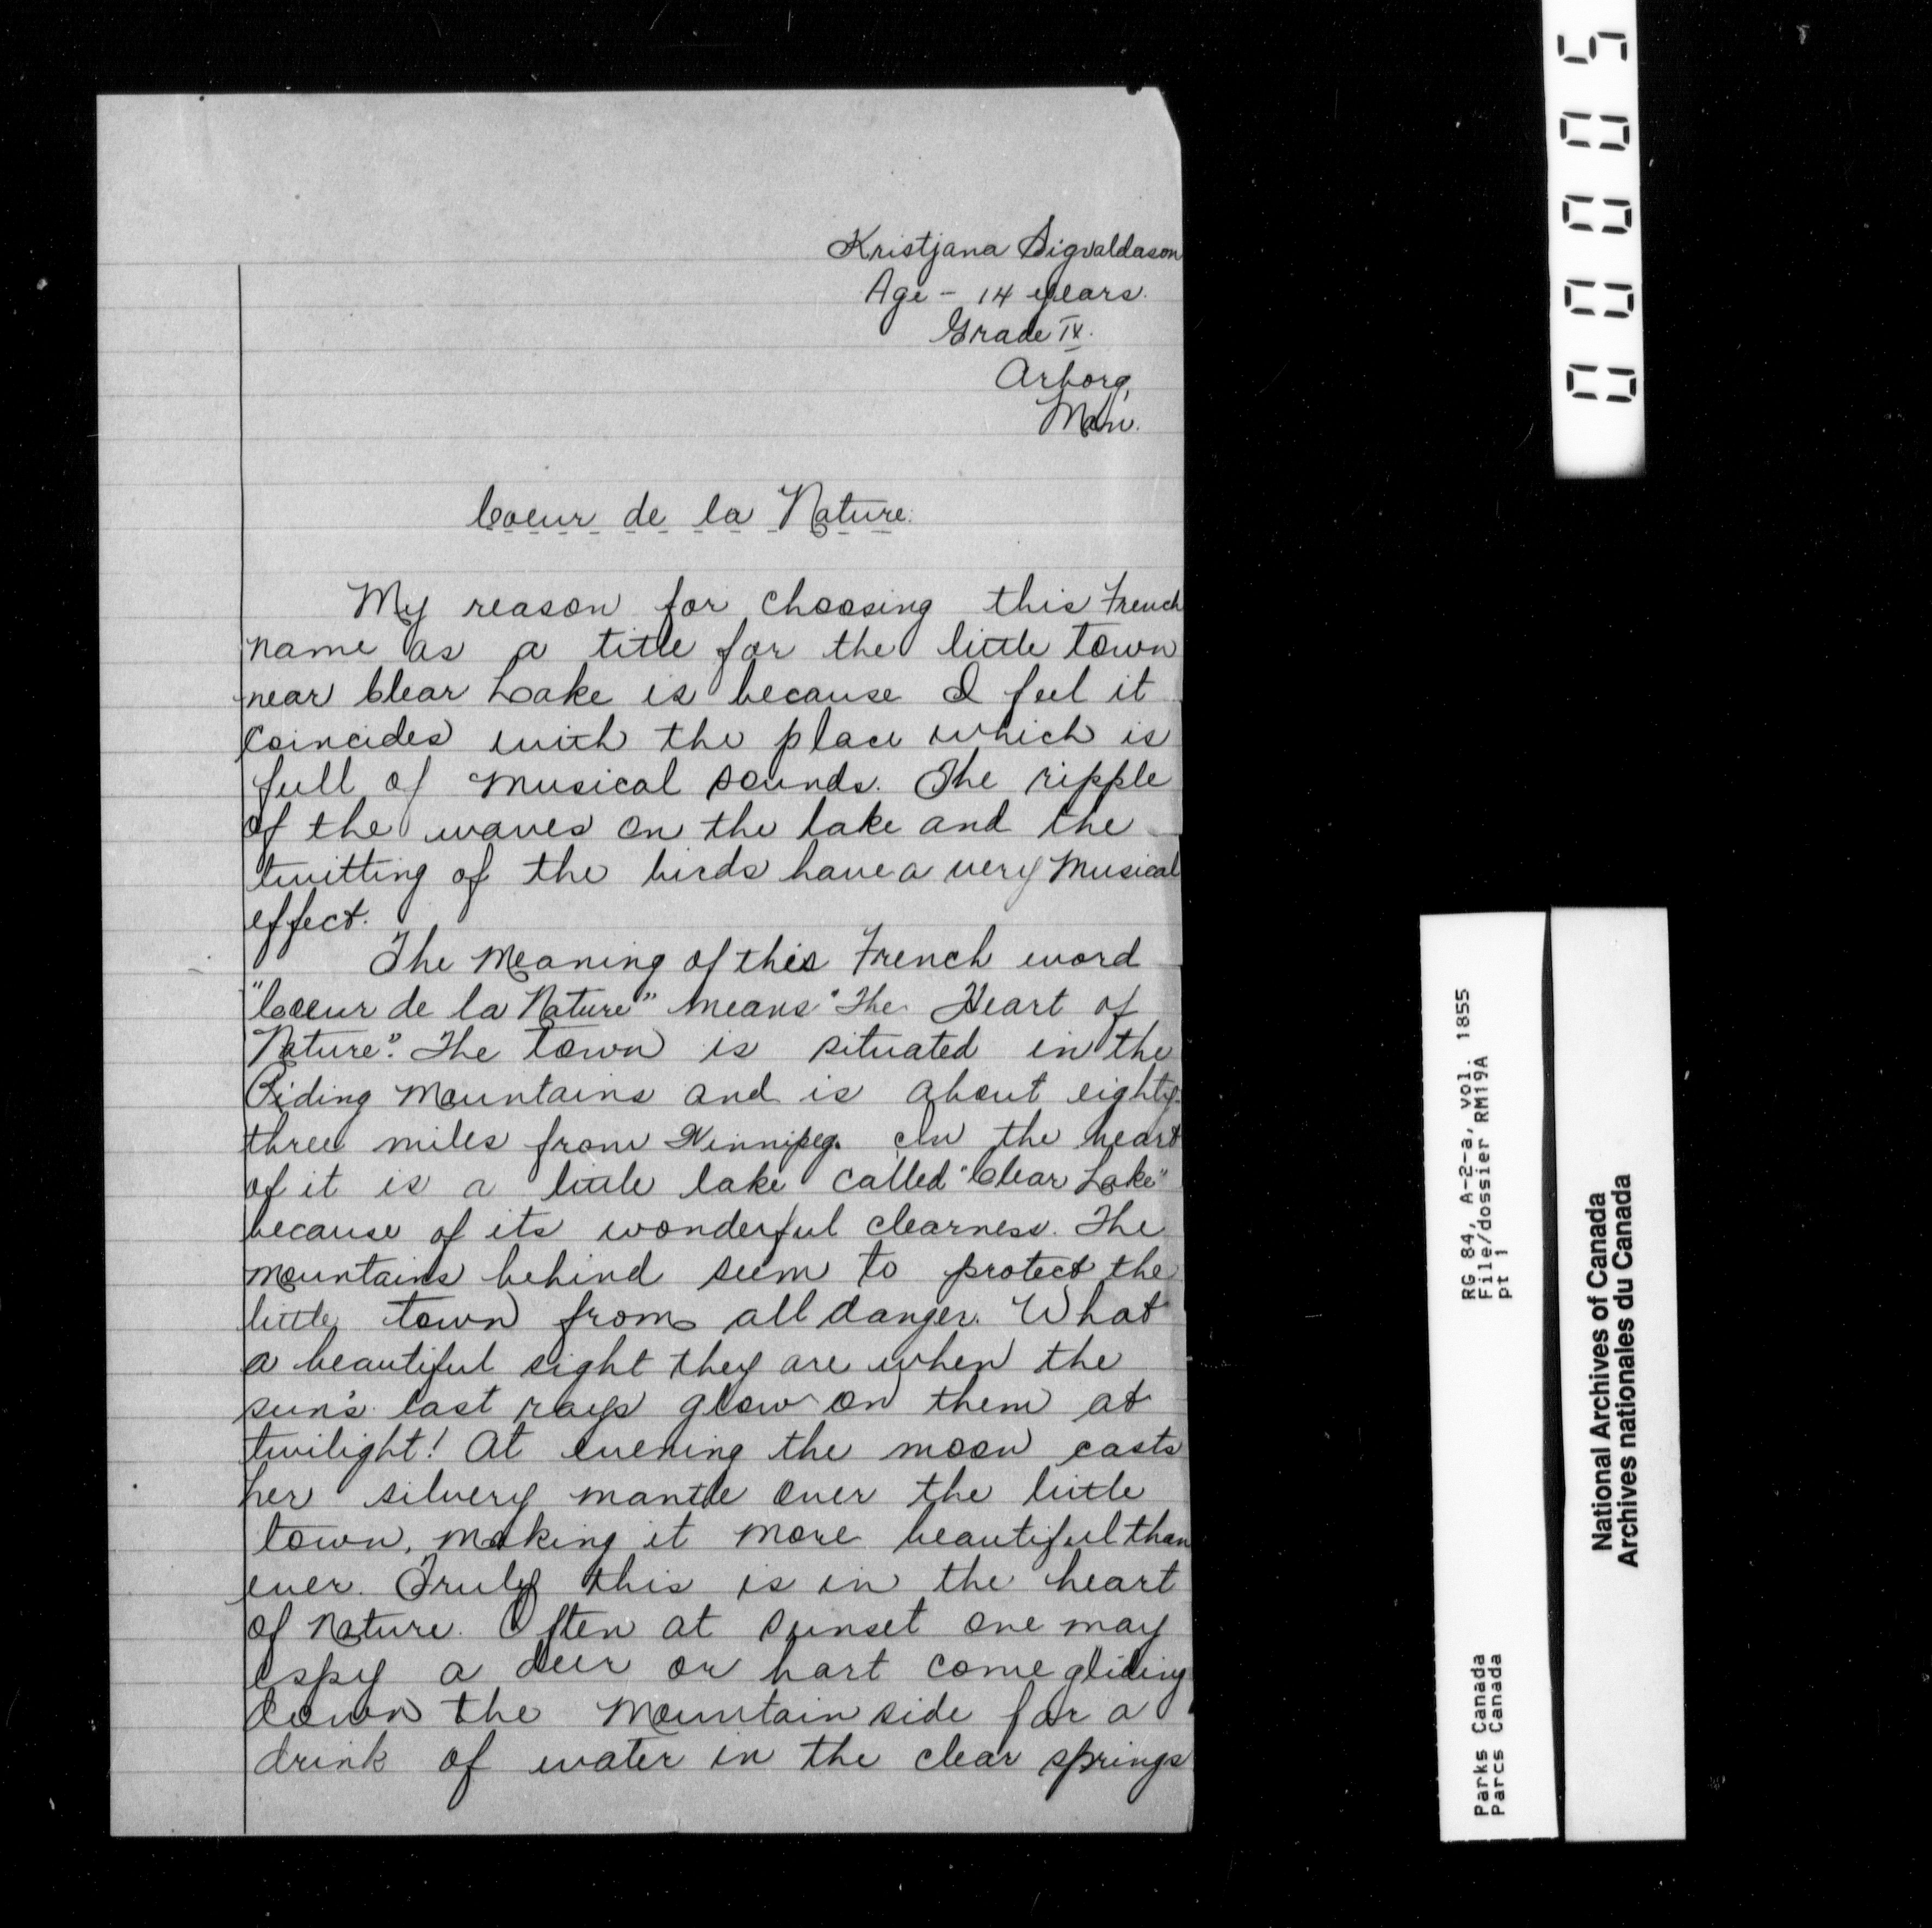 Kristjana Sigvaldason
Age - 14 years.
Grade IX.
Arborg,
Man.
Coeur de la Nature.
My reason for choosing this French
name as a title for the little town
near Clear Lake is because I feel it
coincides with the place which is
full of musical sounds. The ripple
of the waves on the lake and the
twitting of the birds have a very musical
effect.
The meaning of this French word
"Coeur de la Nature" means "The Heart of
Nature". The town is situated in the
Riding Mountains and is about eighty-
three miles from Winnipeg. In the heart
of it is a little lake called "Clear Lake"
because of its wonderful clearness. The
mountains behind seem to protect the
little town from all danger. What
a beautiful sight they are when the
sun's last rays glow on them at
twilight! At evening the moon casts
her silvery mantle over the little
town, making it more beautiful than
ever. Truly this is in the heart
of nature. Often at sunset one may
espy a deer or hart come gliding
down the mountain side for a
drink of water in the clear springs
00005
RG 84, A-2-a, vol. 1855
File/dossier RM19A
pt 1
Parks Canada
Parcs Canada
National Archives of Canada
Archives nationales du Canada